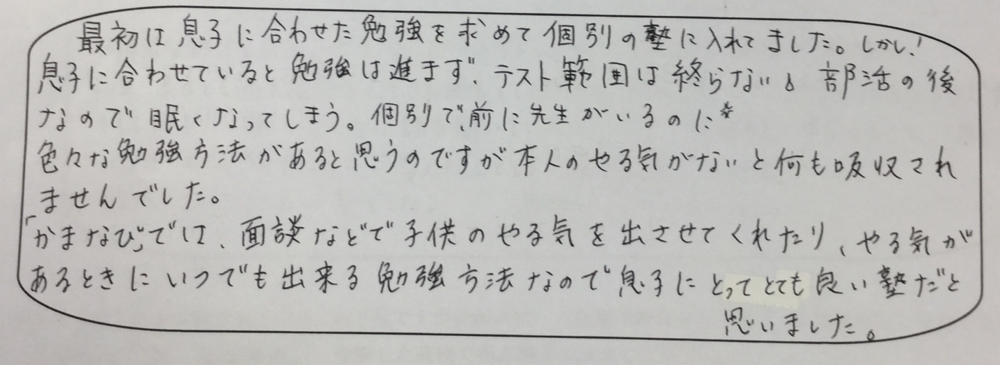 最初は息子に合わせた勉強を求めて個別の塾に入れてました。しかし!
息子に合わせていると勉強は進まず、テスト範囲は終らない。部活の後
なので眠くなってしまう。個別で、前に先生がいるのに*
色々な勉強方法があると思うのですが本人のやる気がないと何も吸収され
ませんでした。
「かまなび」では、面談などで子供のやる気を出させてくれたり、やる気が
あるときにいつでも出来る勉強方法なので息子にとってとても良い塾だと
思いました。